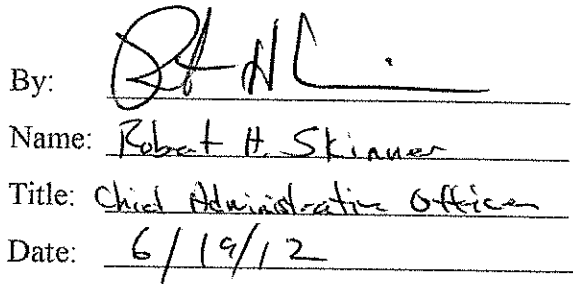 By:
Name: Robert H. Skinner
Title: Chief Administrative Officer
Date: 6/19/12